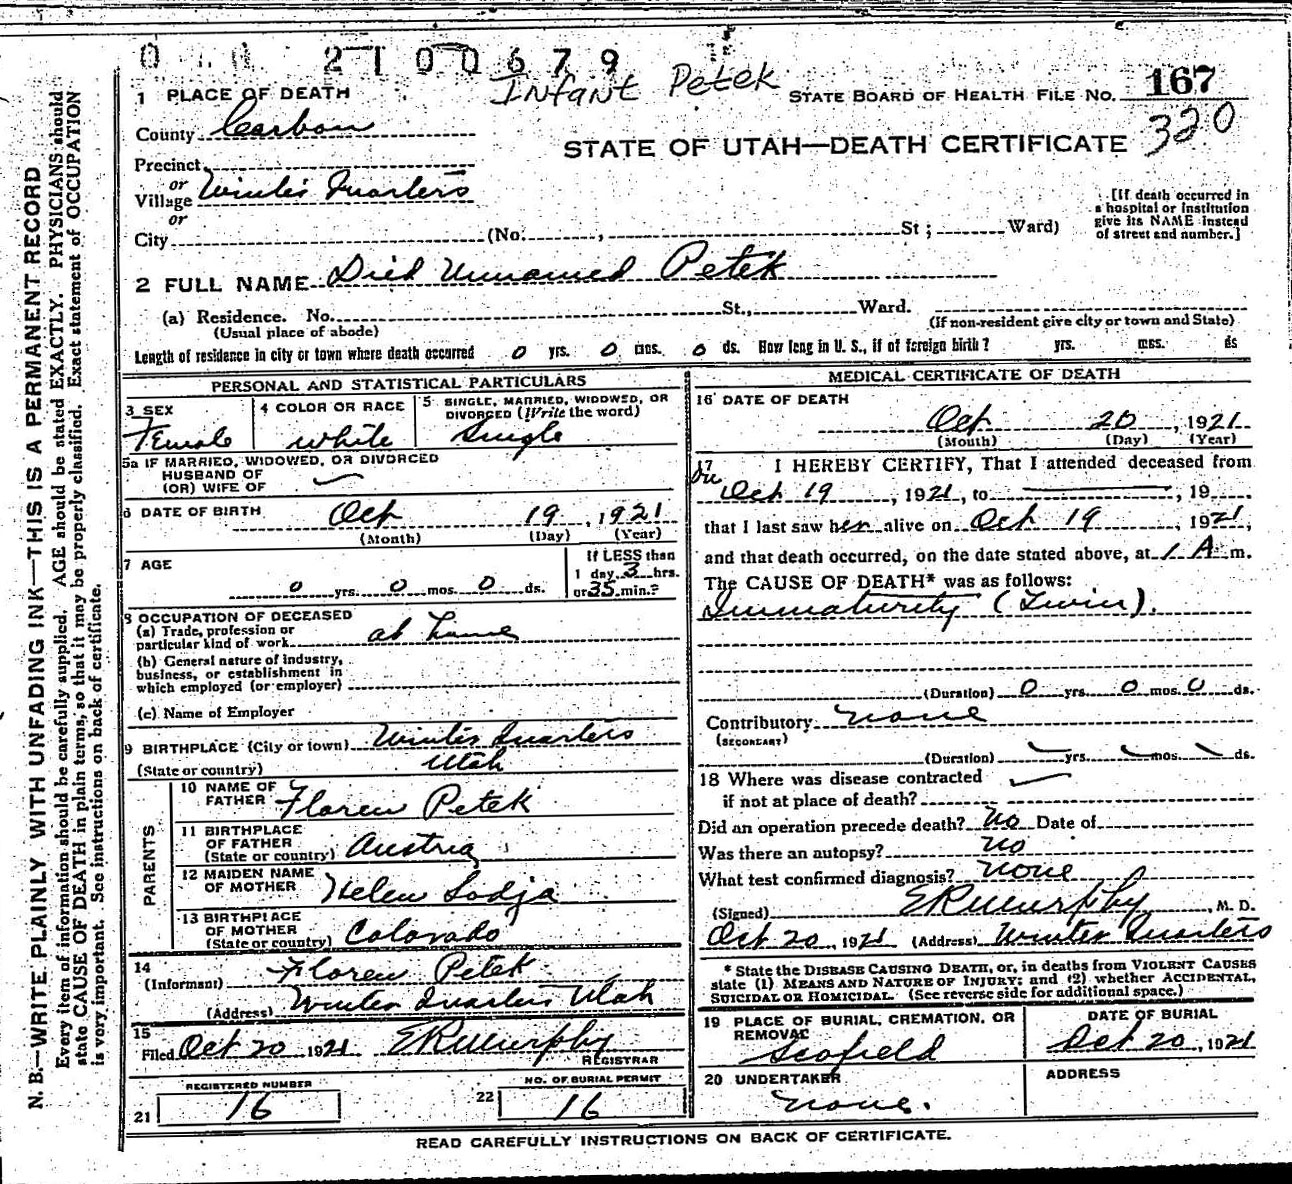 0 2100679
Infant Petek
1 PLACE OF DEATH
STATE BOARD OF HEALTH FILE NO. 167
320
County Carbon
STATE OF UTAH—DEATH CERTIFICATE
Precinct
or
Village Winter Quarters
or
City (No. , St; Ward)
[If death occurred in
a hospital or institution
give its NAME instead
of street and number.]
2 FULL NAME Died Unnamed Petek
(a) Residence. No. St., Ward.
(Usual place of abode)
(If non-resident give city or town and State)
Length of residence in city or town where death occurred 0 yrs. 0 mos. 0 ds. How long in U. S., if of foreign birth? yrs. mos. ds
PERSONAL AND STATISTICAL PARTICULARS
3 SEX
Female
4 COLOR OR RACE
White
5 SINGLE, MARRIED, WIDOWED, OR
DIVORCED (Write the word)
Single
5a IF MARRIED, WIDOWED, OR DIVORCED
HUSBAND OF
(OR) WIFE OF
6 DATE OF BIRTH Oct 19, 1921
(Month) (Day) (Year)
7 AGE
0 yrs. 0 mos. 0 ds.
If LESS than
1 day 3 hrs.
or 35 min.?
8 OCCUPATION OF DECEASED
(a) Trade, profession or
particular kind of work at home
(b) General nature of industry,
business, or establishment in
which employed (or employer)
(c) Name of Employer
9 BIRTHPLACE (City or town) Winter Quarters
(State or country) Utah
PARENTS
10 NAME OF
FATHER Floren Petek
11 BIRTHPLACE
OF FATHER
(State or country) Austria
12 MAIDEN NAME
OF MOTHER Helen Sodja
13 BIRTHPLACE
OF MOTHER
(State or country) Colorado
14
(Informant) Floren Petek
(Address) Winter Quarters Utah
15
Filed Oct 20 1921 ERMurphy
REGISTRAR
REGISTERED NUMBER
21 16
NO. OF BURIAL PERMIT
22 16
MEDICAL CERTIFICATE OF DEATH
16 DATE OF DEATH
Oct 20, 1921
(Month) (Day) (Year)
17 I HEREBY CERTIFY, That I attended deceased from
Oct 19, 1921, to , 19
that I last saw her alive on Oct 19 1921,
and that death occurred, on the date stated above, at 1 A m.
The CAUSE OF DEATH* was as follows:
Immaturity (Twin).
(Duration) 0 yrs. 0 mos. 0 ds.
Contributory none
(SECONDARY)
(Duration) yrs. mos. ds.
18 Where was disease contracted
if not at place of death?
Did an operation precede death? No Date of
Was there an autopsy? No
What test confirmed diagnosis? none
(Signed) ERMurphy, M. D.
Oct 20, 1921 (Address) Winter Quarters
* State the DISEASE CAUSING DEATH, or, in deaths from VIOLENT CAUSES
state (1) MEANS AND NATURE OF INJURY; and (2) whether ACCIDENTAL,
SUICIDAL OR HOMICIDAL. (See reverse side for additional space.)
19 PLACE OF BURIAL, CREMATION, OR
REMOVAL
Scofield
DATE OF BURIAL
Oct 20, 1921
20 UNDERTAKER
none.
ADDRESS
READ CAREFULLY INSTRUCTIONS ON BACK OF CERTIFICATE.
N. B.—WRITE PLAINLY WITH UNFADING INK—THIS IS A PERMANENT RECORD
Every item of information should be carefully supplied. AGE should be stated EXACTLY. PHYSICIANS should
state CAUSE OF DEATH in plain terms, so that it may be properly classified. Exact statement of OCCUPATION
is very important. See instructions on back of certificate.